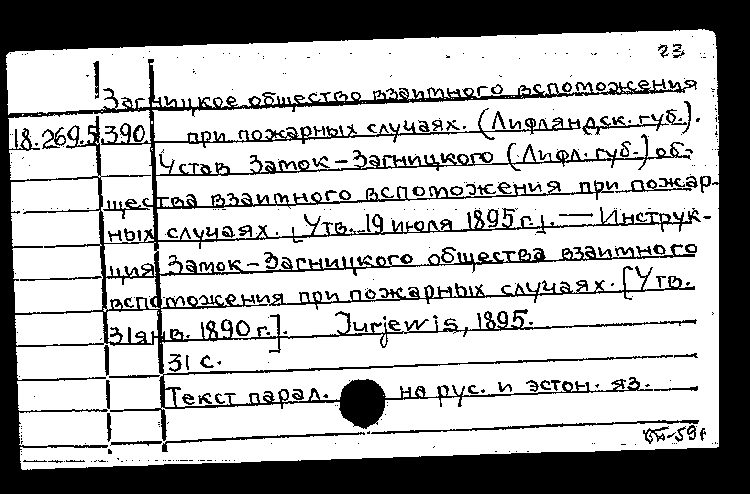 23
Загницкое общество взаимного вспоможения
18.269.5.390 при пожарных случаях. (Лифляндск. губ.).
Устав Замок-Загницкого (Лифл. губ.) об-
щества взаимного вспоможения при пожар-
ных случаях. [Утв. 19 июля 1895 г.]. — Инструк-
ция Замок-Загницкого общества взаимного
вспоможения при пожарных случаях. [Утв.
31 янв. 1890 г.]. Jurjewis, 1895.
31 с.
Текст парал. на рус. и эстон. яз.